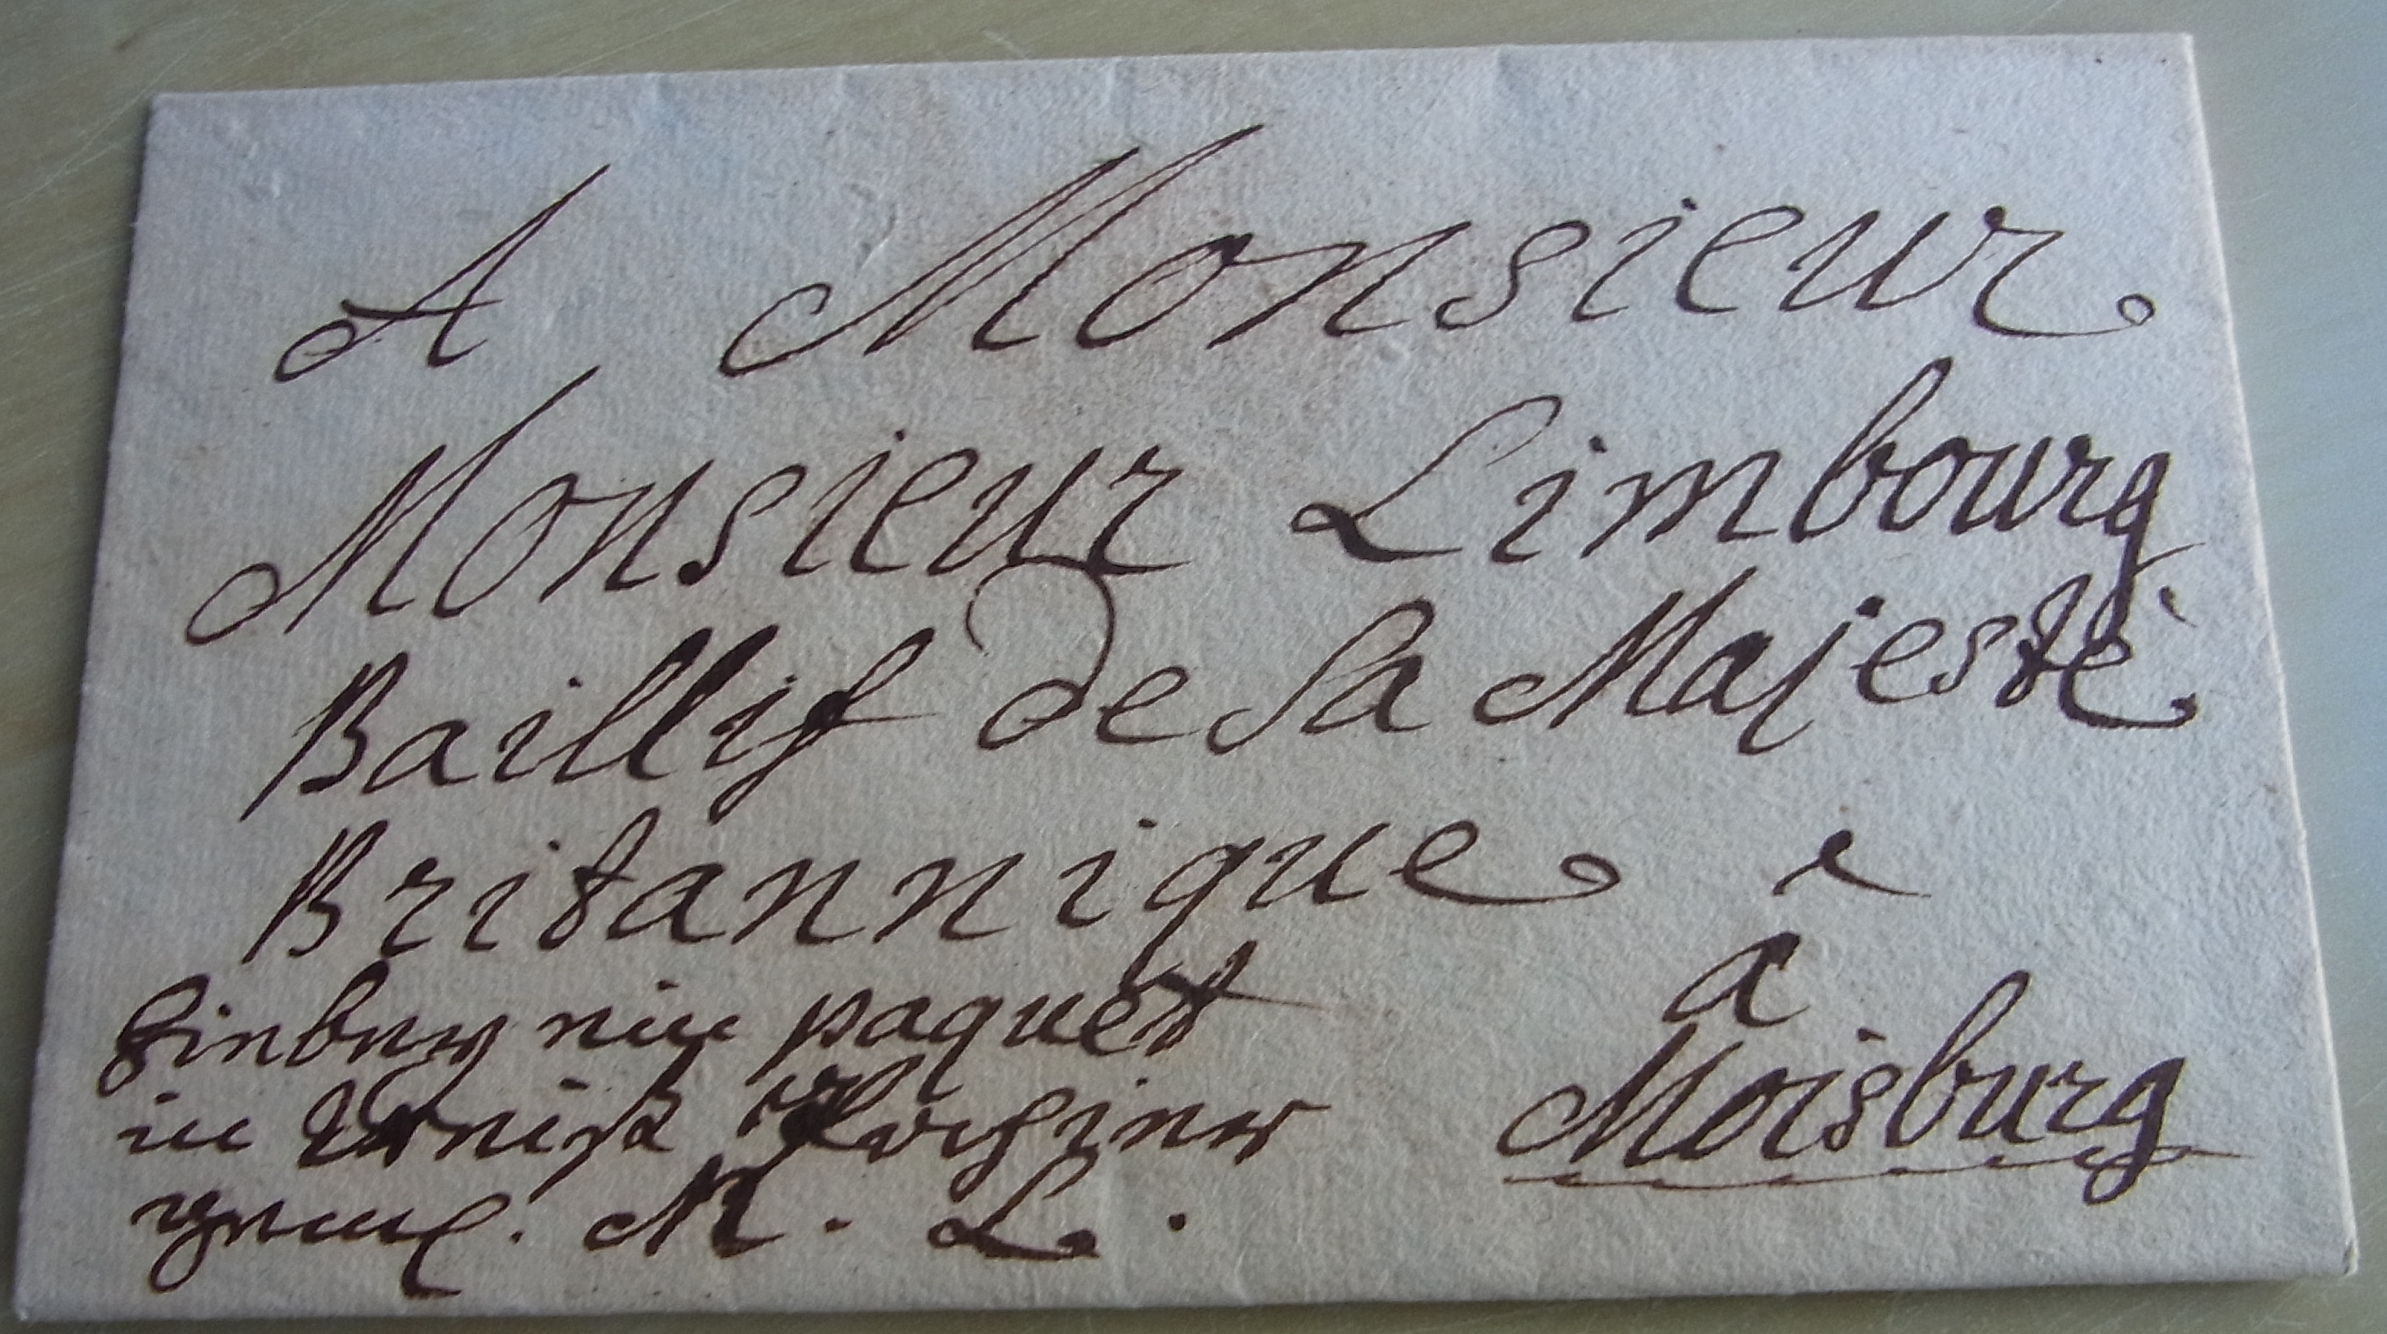 A Monsieur
Monsieur Limbourg
Baillif de Sa Majesté
Britannique
a
Moisburg
Hinbey ein paquet
in
M. L.